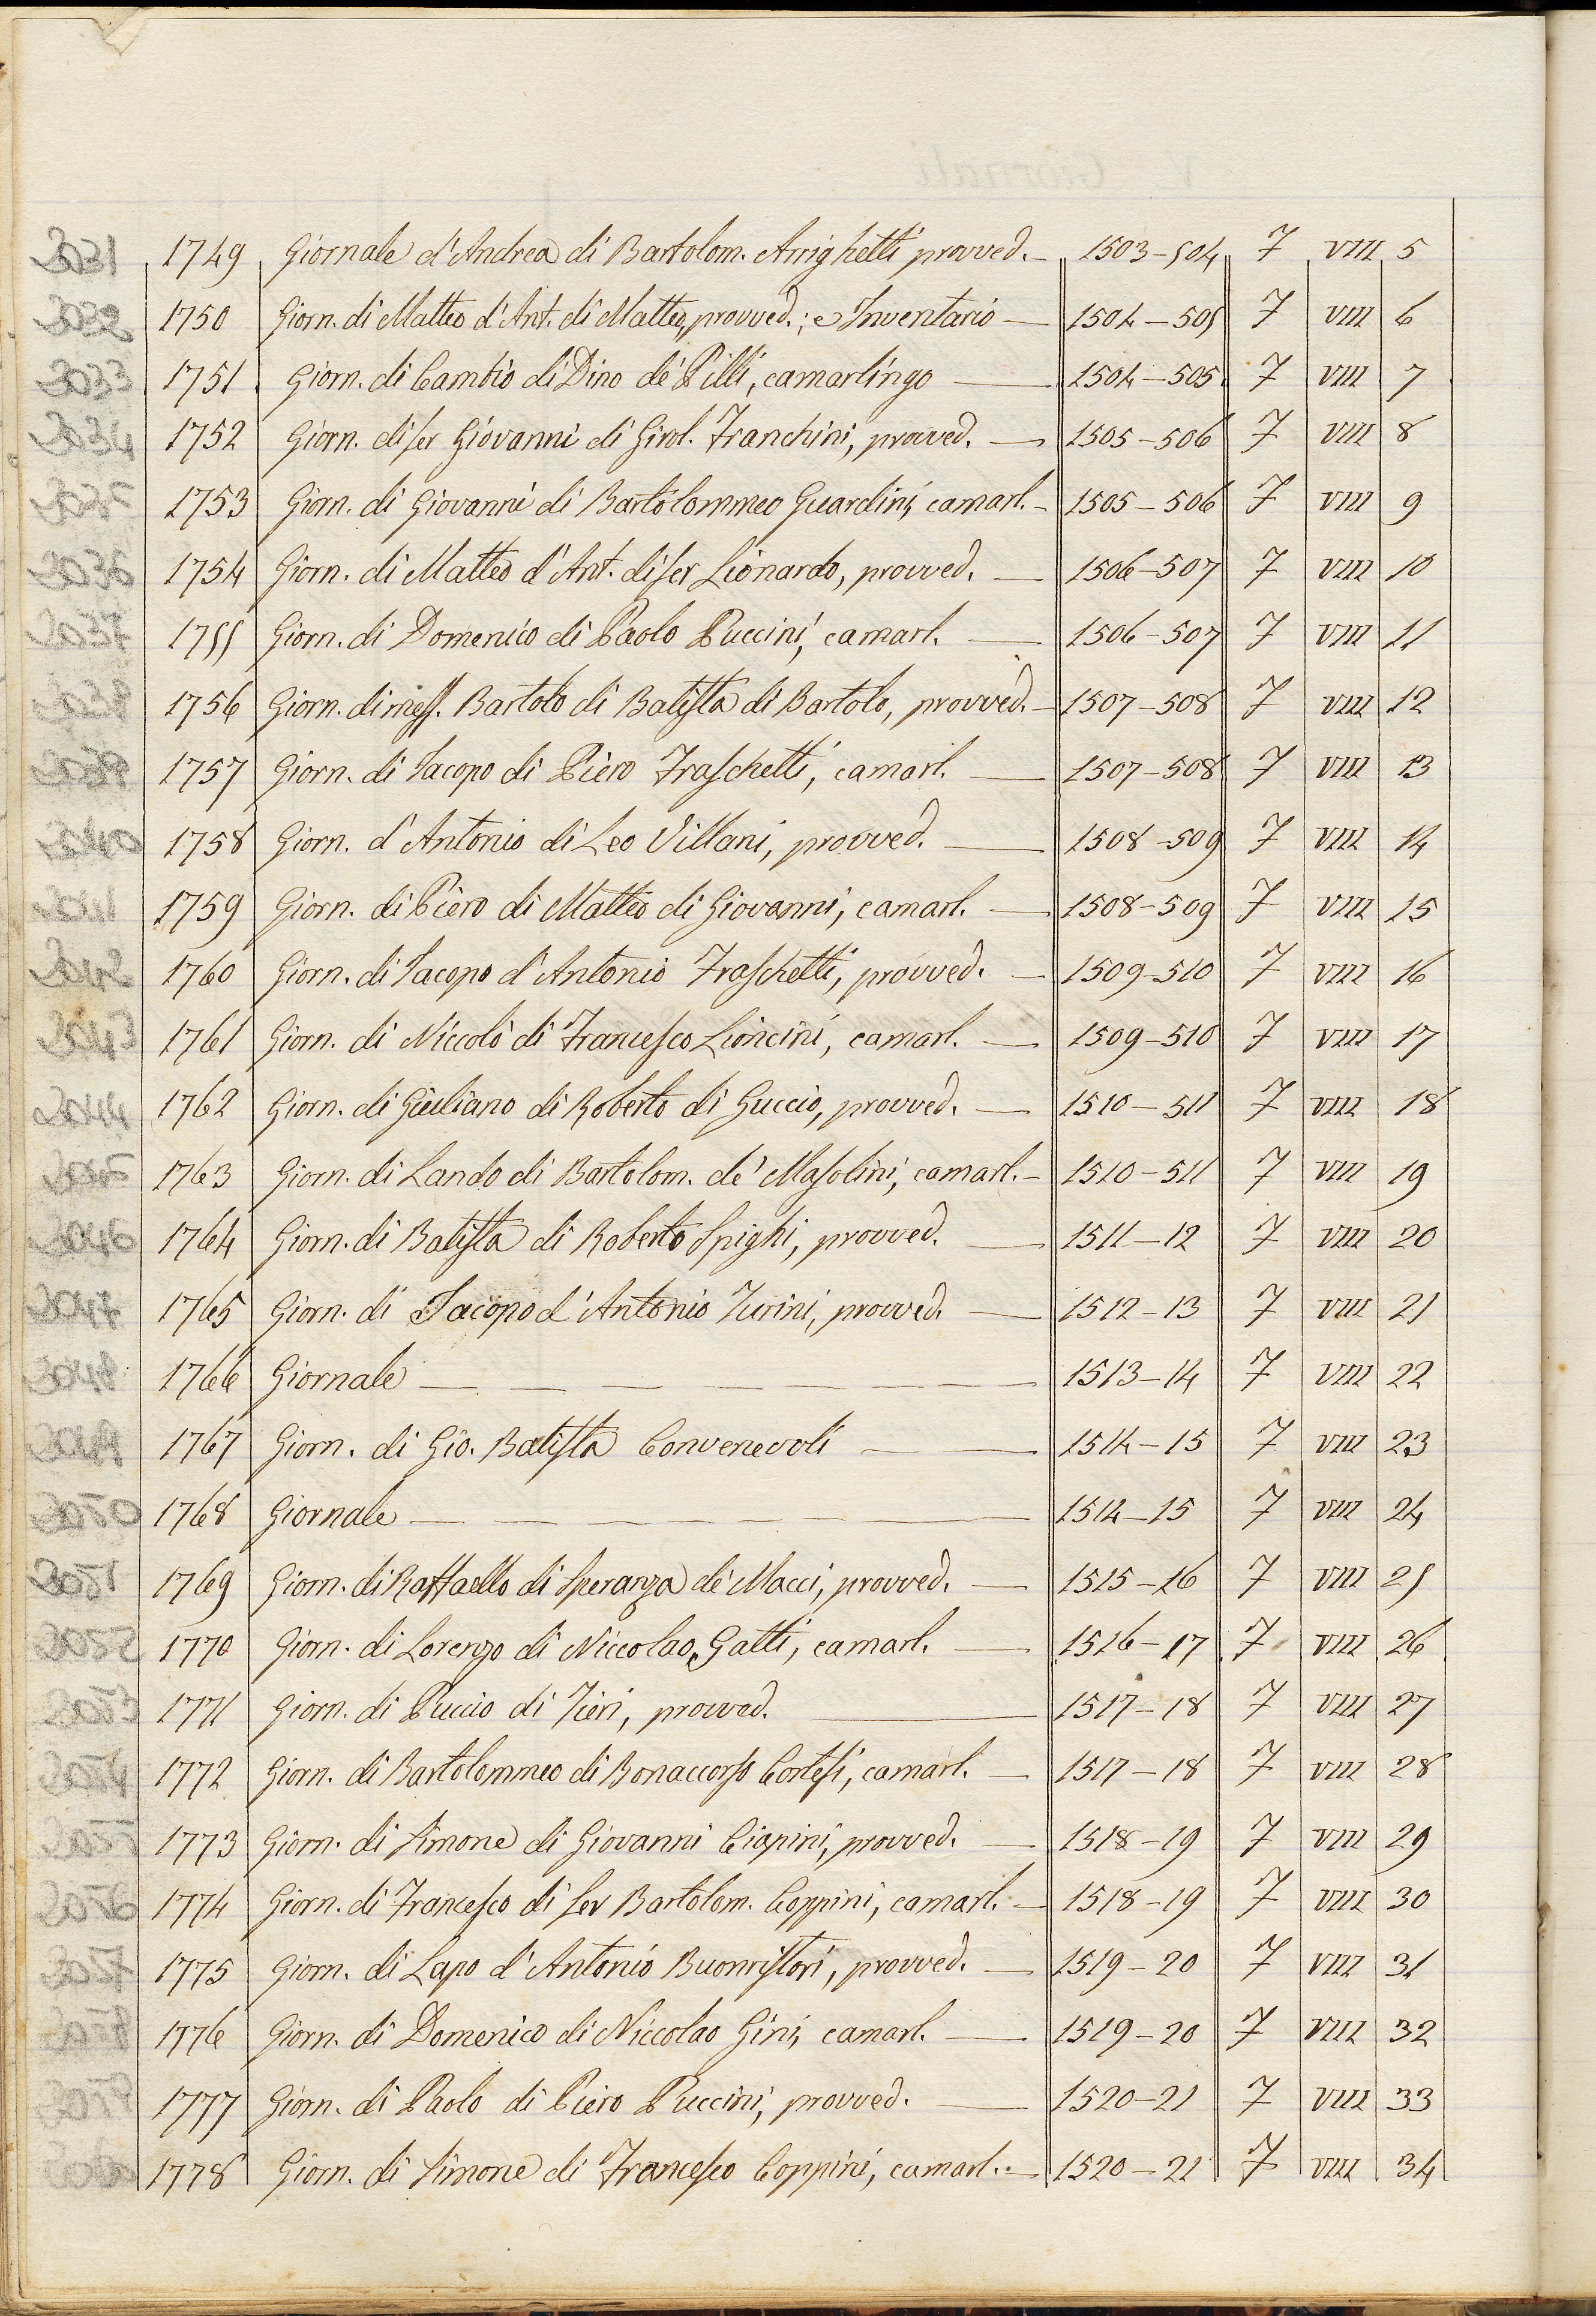 2031 1749 Giornale d'Andrea di Bartolom. Arrighetti provved. 1503-504 7 VIII 5
2032 1750 Giorn. di Matteo d'Ant. di Matteo, provved.; e Inventario 1504-505 7 VIII 6
2033 1751 Giorn. di Cambio di Dino de' Pilli, camarlingo 1504-505 7 VIII 7
2034 1752 Giorn. di ser Giovanni di Girol. Franchini, provved. 1505-506 7 VIII 8
2035 1753 Giorn. di Giovanni di Bartolommeo Guardini, camarl. 1505-506 7 VIII 9
2036 1754 Giorn. di Matteo d'Ant. di ser Lionardo, provved. 1506-507 7 VIII 10
2037 1755 Giorn. di Domenico di Paolo Puccini, camarl. 1506-507 7 VIII 11
2038 1756 Giorn. di mess. Bartolo di Batista di Bartolo, provved. 1507-508 7 VIII 12
2039 1757 Giorn. di Iacopo di Piero Fraschetti, camarl. 1507-508 7 VIII 13
2040 1758 Giorn. d'Antonio di Leo Villani, provved. 1508-509 7 VIII 14
2041 1759 Giorn. di Piero di Matteo di Giovanni, camarl. 1508-509 7 VIII 15
2042 1760 Giorn. di Iacopo d'Antonio Fraschetti, provved. 1509-510 7 VIII 16
2043 1761 Giorn. di Niccolò di Francesco Lioncini, camarl. 1509-510 7 VIII 17
2044 1762 Giorn. di Giuliano di Roberto di Guccio, provved. 1510-511 7 VIII 18
2045 1763 Giorn. di Lando di Bartolom. de' Masolini, camarl. 1510-511 7 VIII 19
2046 1764 Giorn. di Batista di Roberto Spighi, provved. 1511-12 7 VIII 20
2047 1765 Giorn. di Iacopo d'Antonio Turini, provved. 1512-13 7 VIII 21
2048 1766 Giornale 1513-14 7 VIII 22
2049 1767 Giorn. di Gio. Batista Convenevoli 1514-15 7 VIII 23
2050 1768 Giornale 1514-15 7 VIII 24
2051 1769 Giorn. di Raffaello di Speranza de' Macci, provved. 1515-16 7 VIII 25
2052 1770 Giorn. di Lorenzo di Niccolao Gatti, camarl. 1516-17 7 VIII 26
2053 1771 Giorn. di Puccio di Tieri, provved. 1517-18 7 VIII 27
2054 1772 Giorn. di Bartolommeo di Bonaccorso Cortesi, camarl. 1517-18 7 VIII 28
2055 1773 Giorn. di Simone di Giovanni Ciapini, provved. 1518-19 7 VIII 29
2056 1774 Giorn. di Francesco di ser Bartolom. Coppini, camarl. 1518-19 7 VIII 30
2057 1775 Giorn. di Lapo d'Antonio Buonristori, provved. 1519-20 7 VIII 31
2058 1776 Giorn. di Domenico di Niccolao Gini, camarl. 1519-20 7 VIII 32
2059 1777 Giorn. di Paolo di Piero Puccini, provved. 1520-21 7 VIII 33
2060 1778 Giorn. di Simone di Francesco Coppini, camarl. 1520-21 7 VIII 34